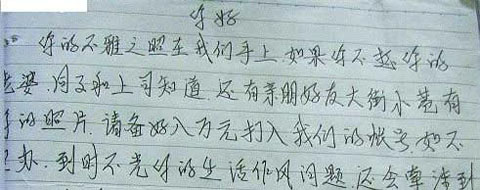 你好
你的不雅之照在我们手上.如果你不想你的
老婆.同事和上司知道.还有亲朋好友大街小巷.有
你的照片.请备好八万元打入我们的帐号如不
照办.到时不光你的生活作风问题.还会牵涉到